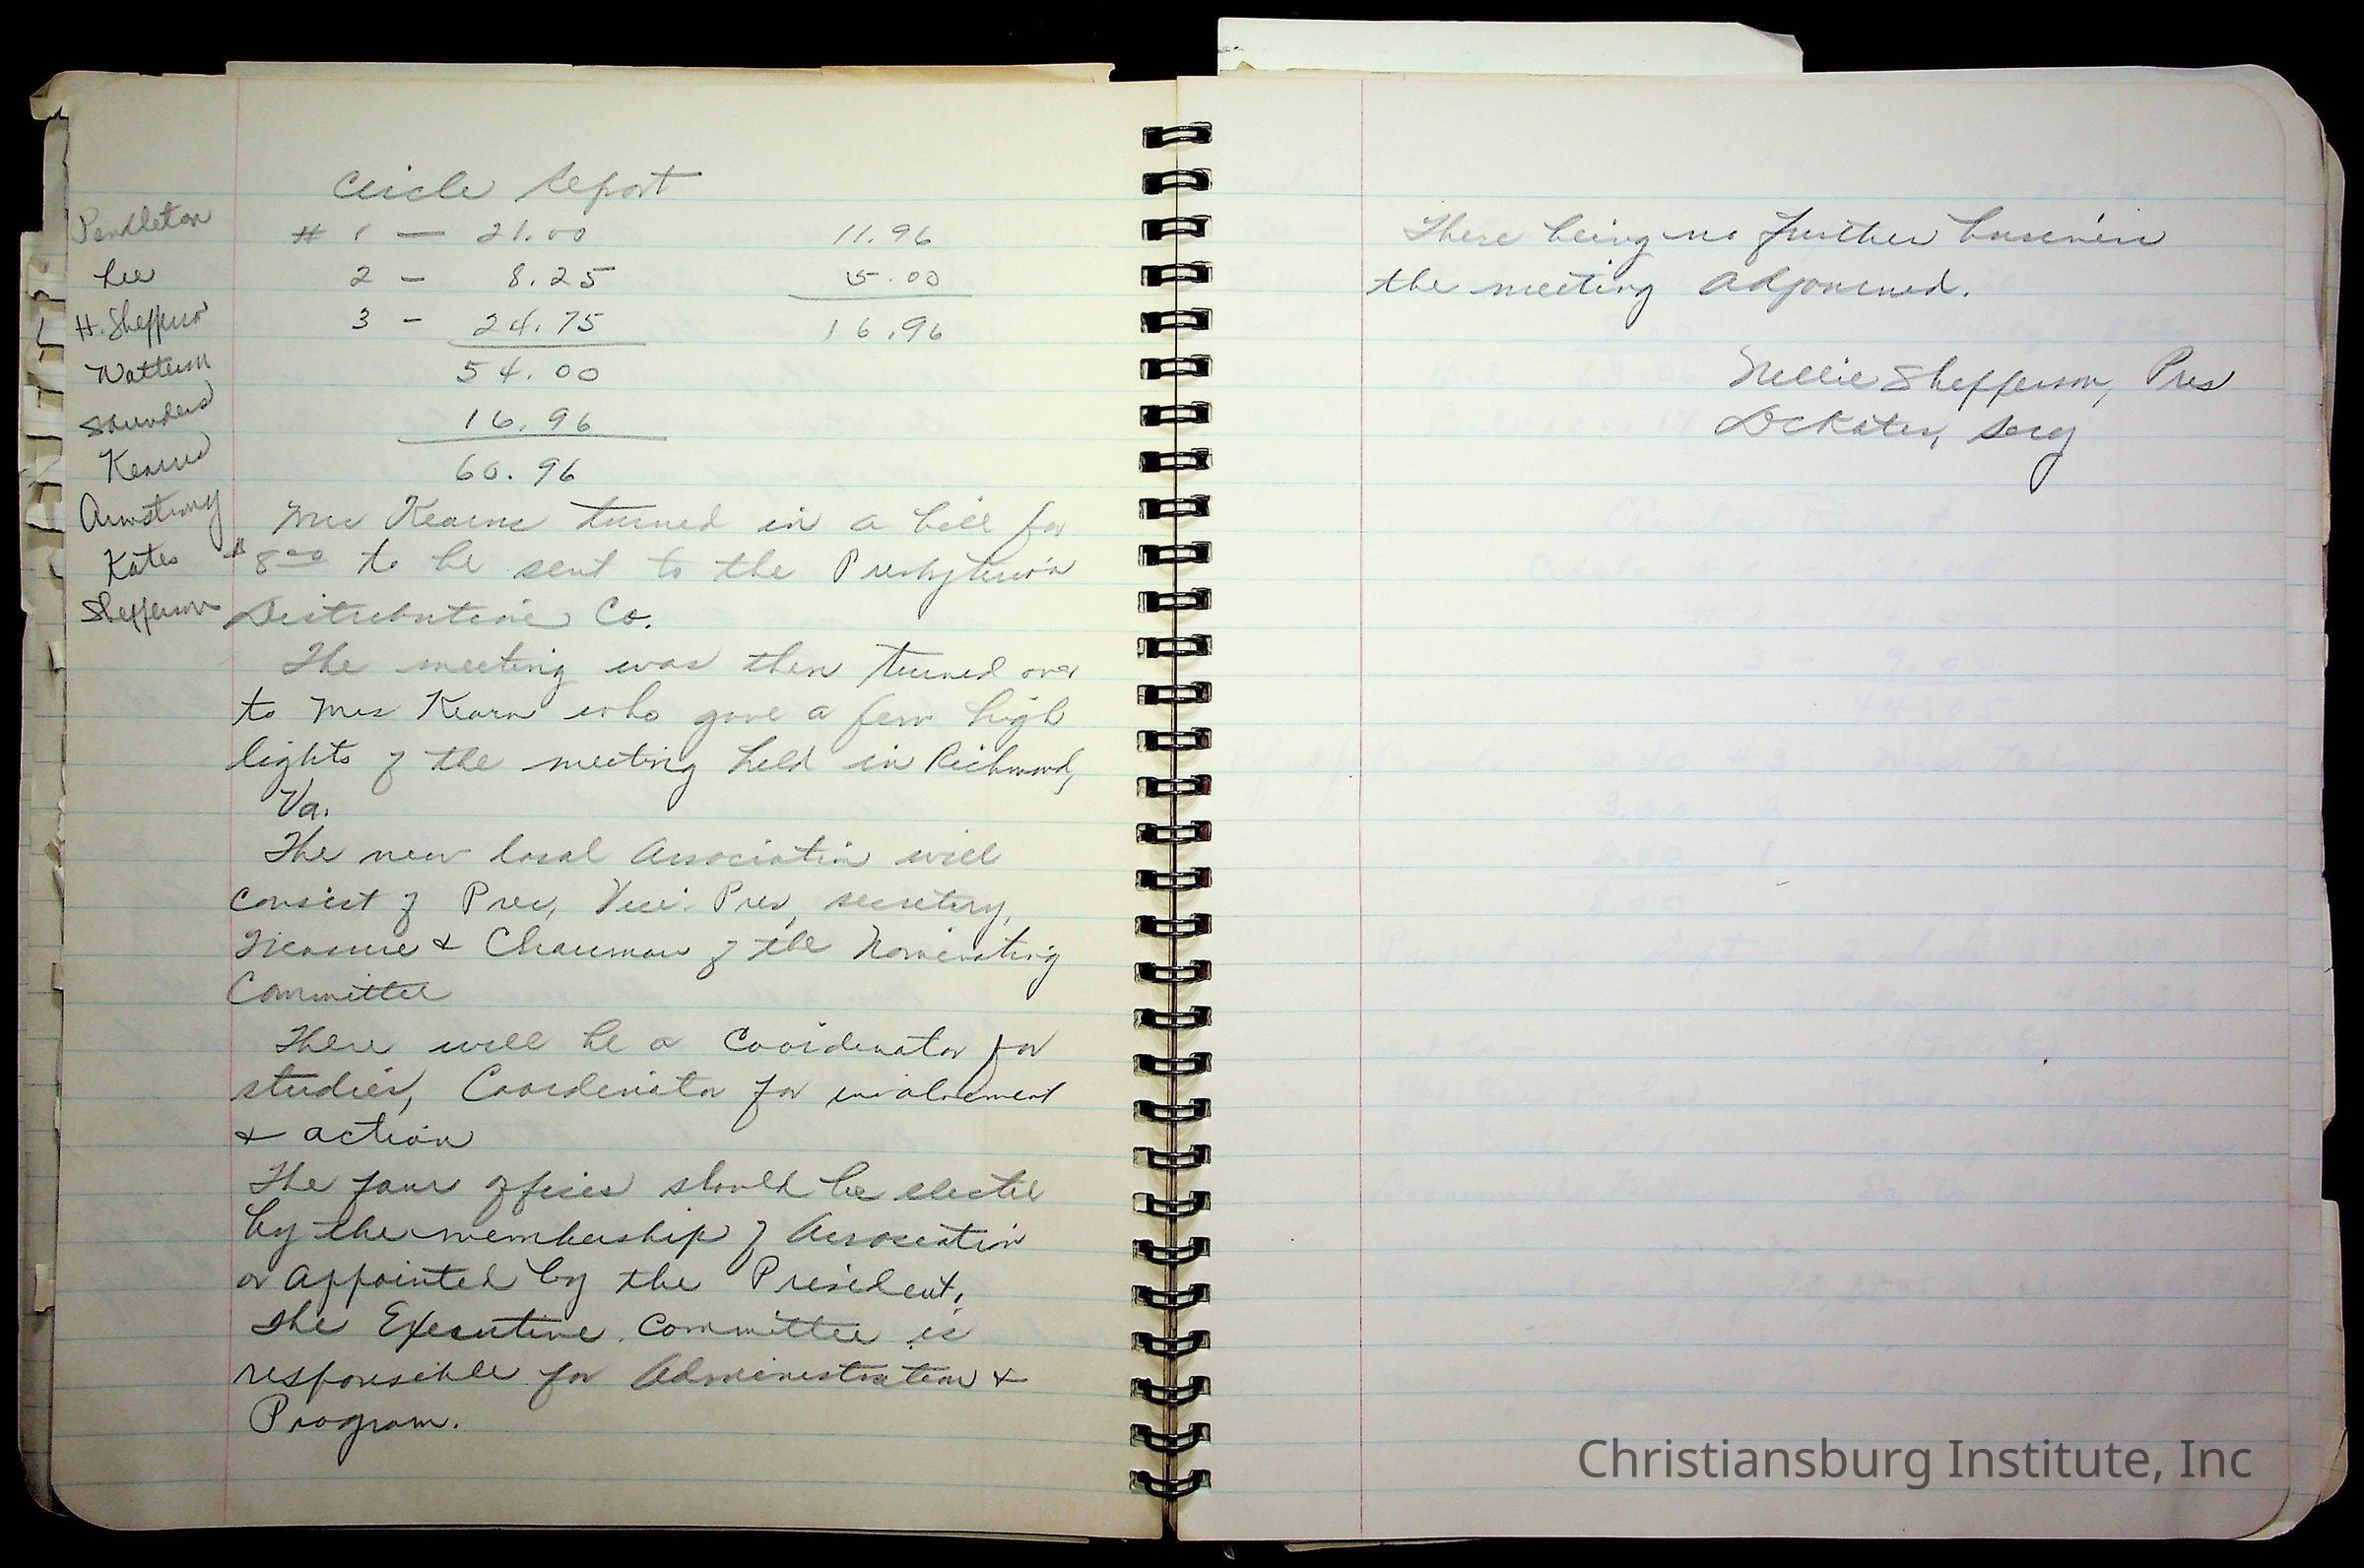 Circle Report
# 1 — 21.00 11.96
2 - 8.25 5.00
3 - 24.75 16.96
54.00
16.96
60.96
Pendleton
Lee
H. Shefferson
Watterson
Saunders
Kearns
Armstrong
Kates
Shefferson
Mrs Kearns turned in a bill for
$8.00 to be sent to the Presbyterian
Distributive Co.
The meeting was then turned over
to Mrs Kearn who gave a few high
lights of the meeting held in Richmond,
Va.
The new local Association will
consist of Pres, Vice-Pres, secretary,
Treasure & Chairman of the Nominating
Committee
There will be a Coordinator for
studies, Coordinator for involvement
& action
The four offices should be elected
by the membership of Association
or appointed by the President.
The Executive Committee is
responsible for Administration &
Program.
There being no further business
the meeting adjourned.
Nellie Shefferson, Pres
D C Kates, Secy
Christiansburg Institute, Inc